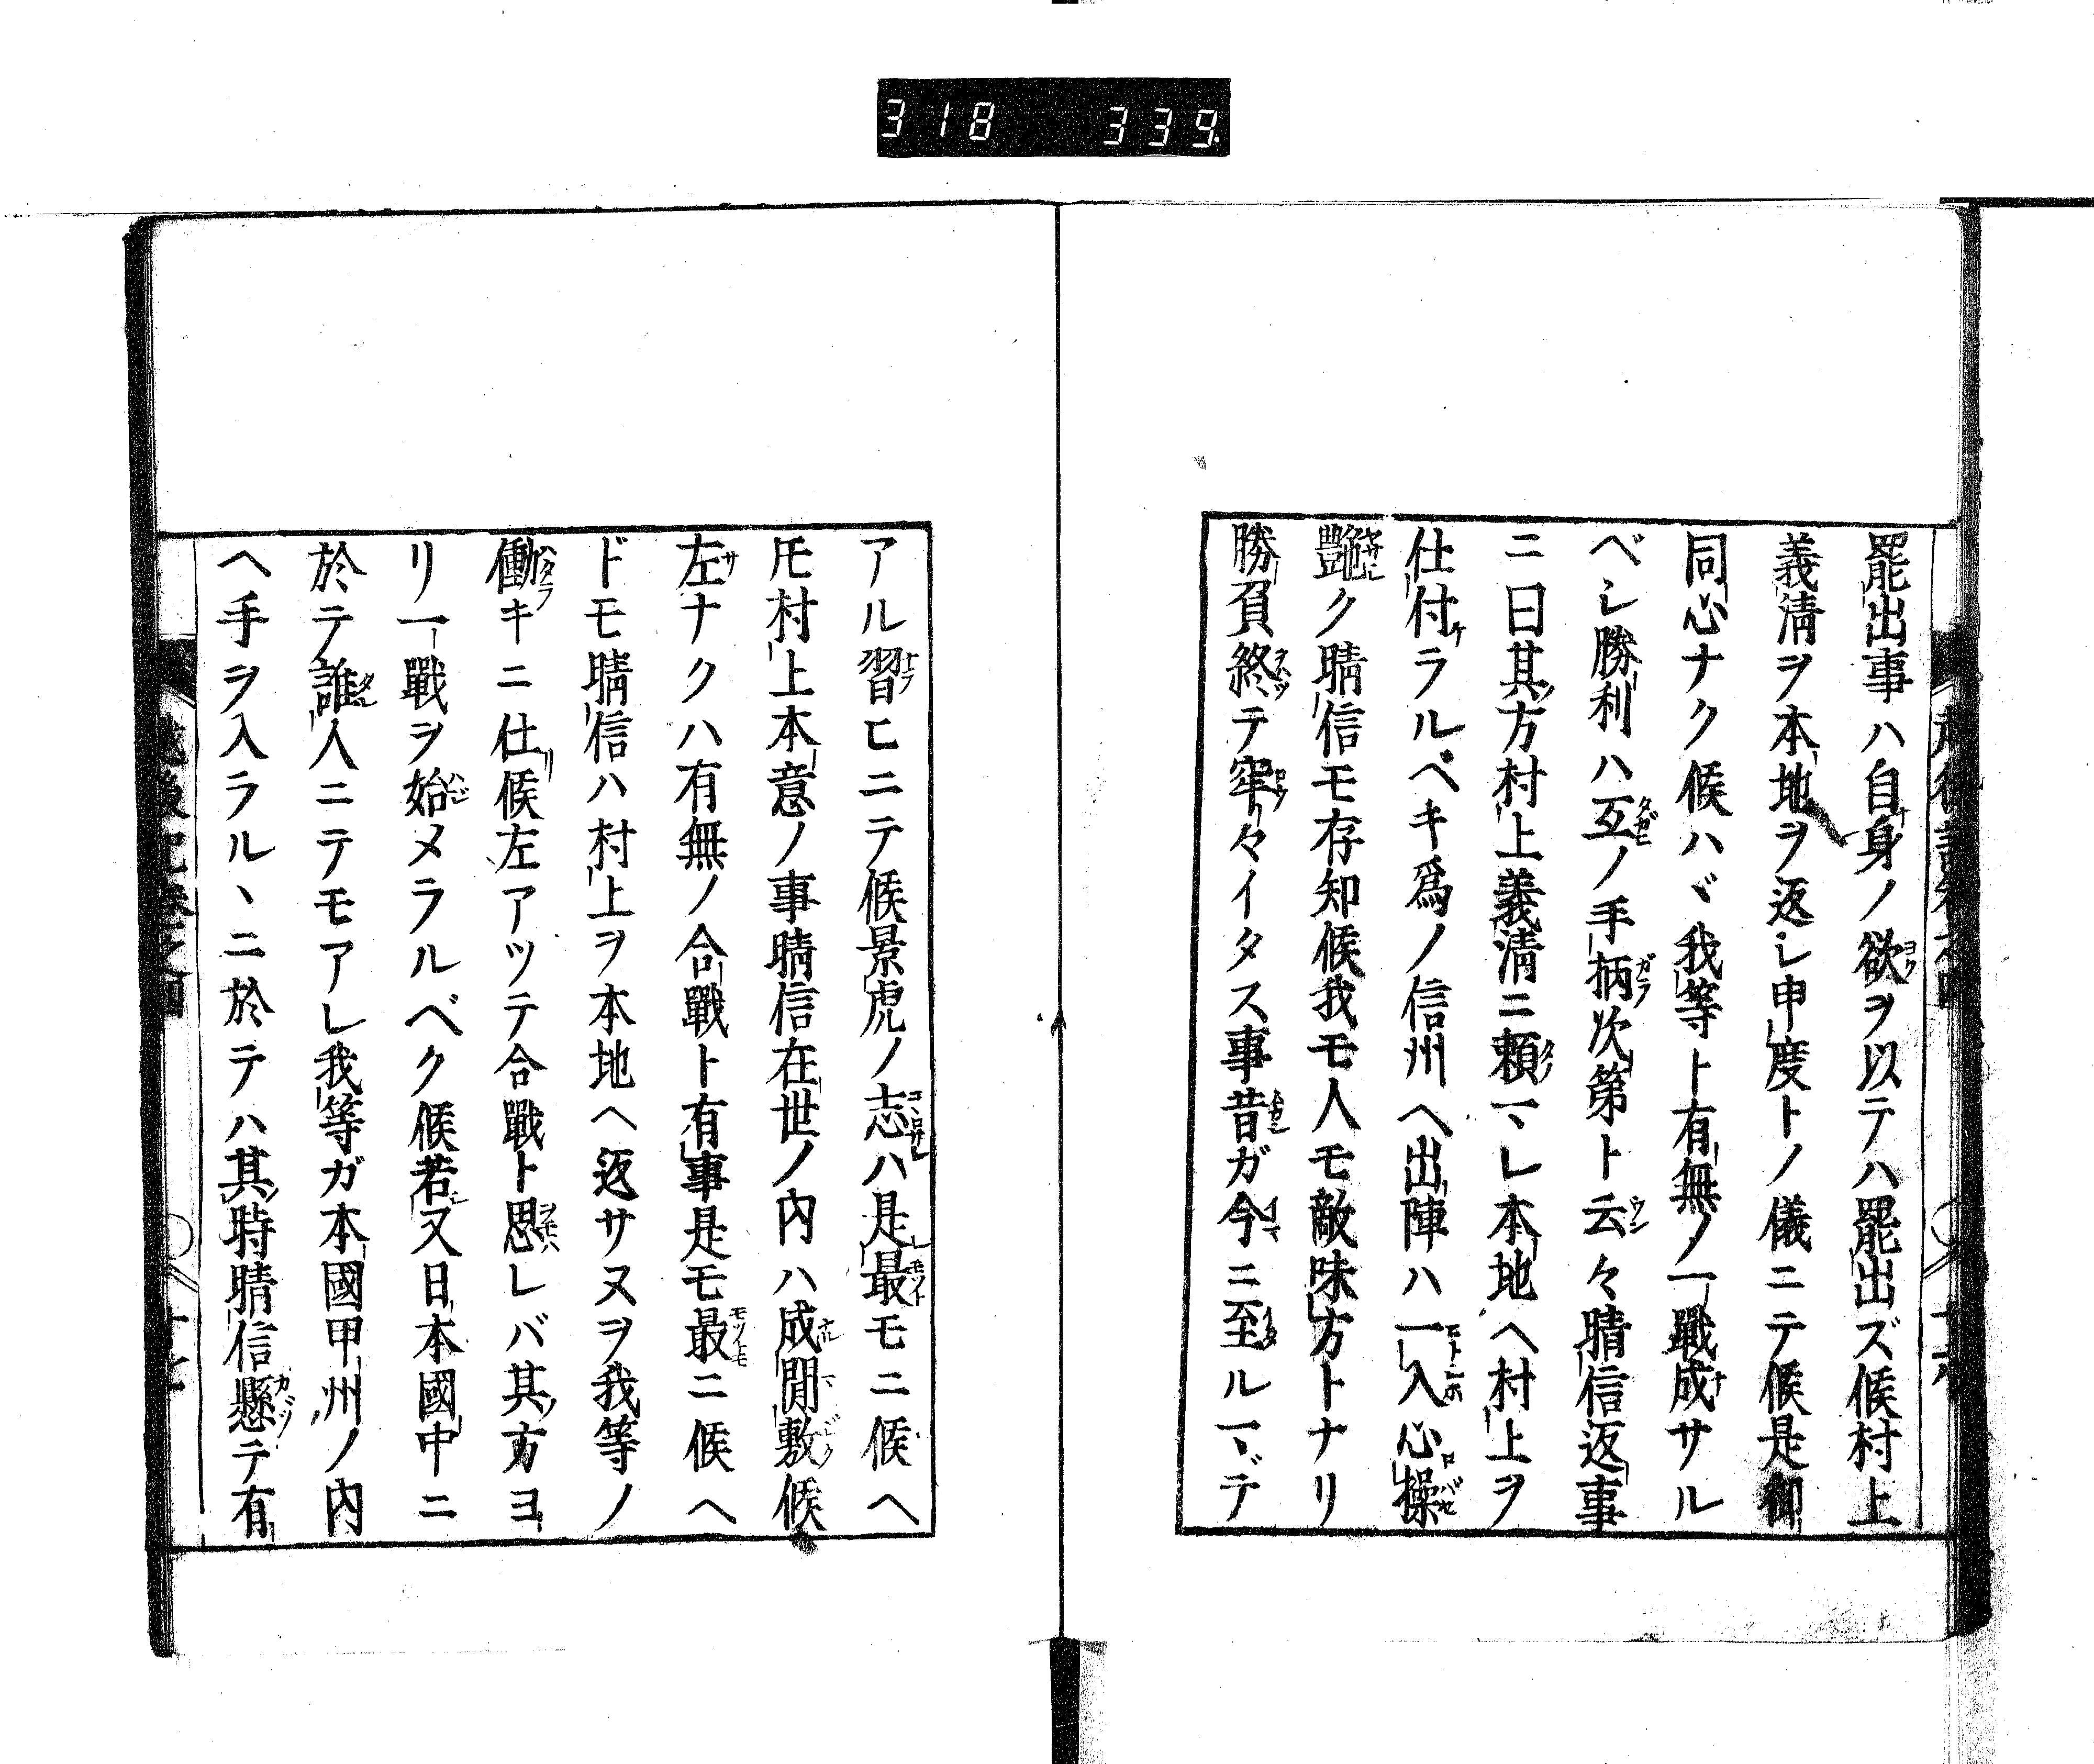 318 339
罷出事ハ自身ノ欲ヲ以テハ罷出ズ候村上
義淸ヲ本地ヲ返シ申度トノ儀ニテ候是御
同心ナク候ハヾ我等ト有無ノ一戰成サル
ベシ勝利ハ互ノ手柄次第ト云々晴信返事
ニ曰其方村上義淸ニ頼マレ本地ヘ村上ヲ
仕付ラルベキ爲ノ信州ヘ出陣ハ一入心操
艶ク晴信モ存知候我モ人モ敵味方トナリ
勝負終テ牢々イタス事昔ガ今ニ至ルマデ
アル習ヒニテ候景虎ノ志ハ是最モニ候ヘ
𪜈村上本意ノ事晴信在世ノ內ハ成間敷候
左ナクハ有無ノ合戰ト有事是モ最ニ候ヘ
ドモ晴信ハ村上ヲ本地ヘ返サヌヲ我等ノ
働キニ仕候左アツテ合戰ト思レバ其方ヨ
リ一戰ヲ始メラルベク候若又日本國中ニ
於テ誰人ニテモアレ我等ガ本國甲州ノ內
ヘ手ヲ入ラルヽニ於テハ其時晴信懸テ有